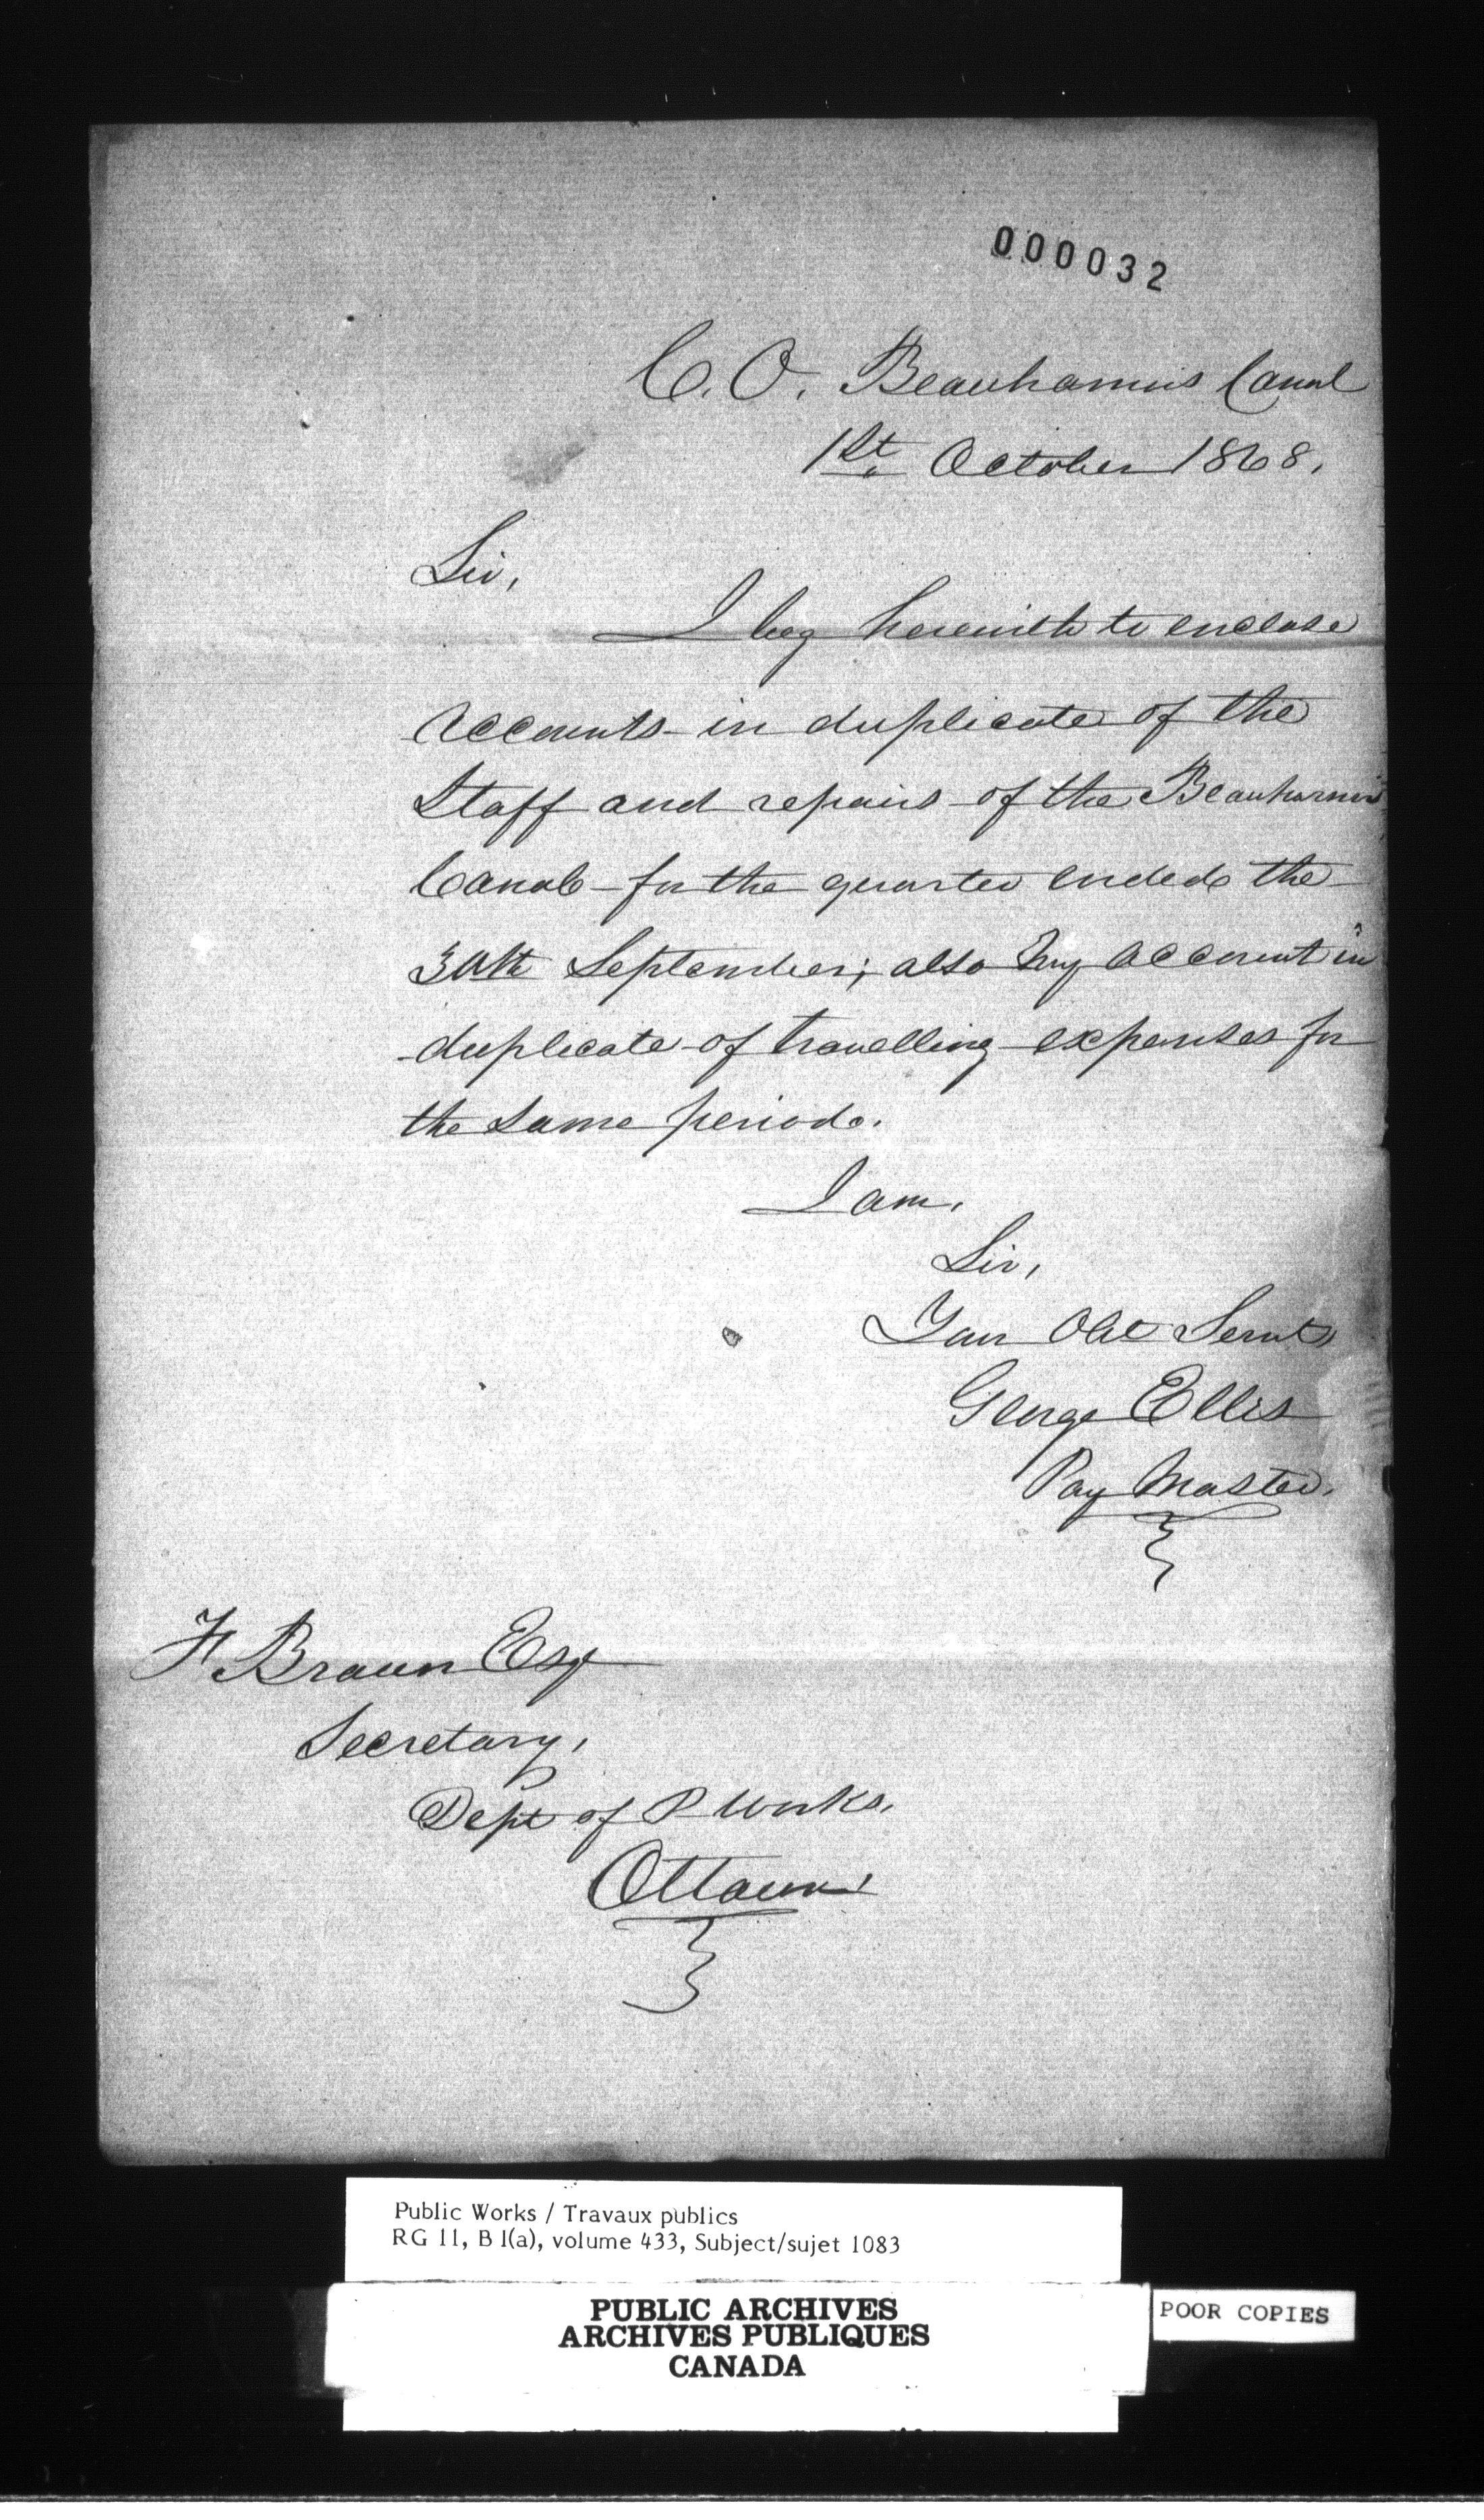 000032
C. O. Beauharnois Canal
1st. October 1868.
Sir,
I beg herewith to enclose
accounts in duplicate of the
Staff and repairs of the Beauharnois
Canal for the quarter ended the
30th September; also my account in
duplicate of travelling expenses for
the same period.
I am,
Sir,
Your Obt Servt
George Ellis
Pay Master.
F Braun Esqr
Secretary,
Dept of P Works,
Ottawa
Public Works / Travaux publics
RG 11, B 1(a), volume 433, Subject/sujet 1083
PUBLIC ARCHIVES
ARCHIVES PUBLIQUES
CANADA
POOR COPIES